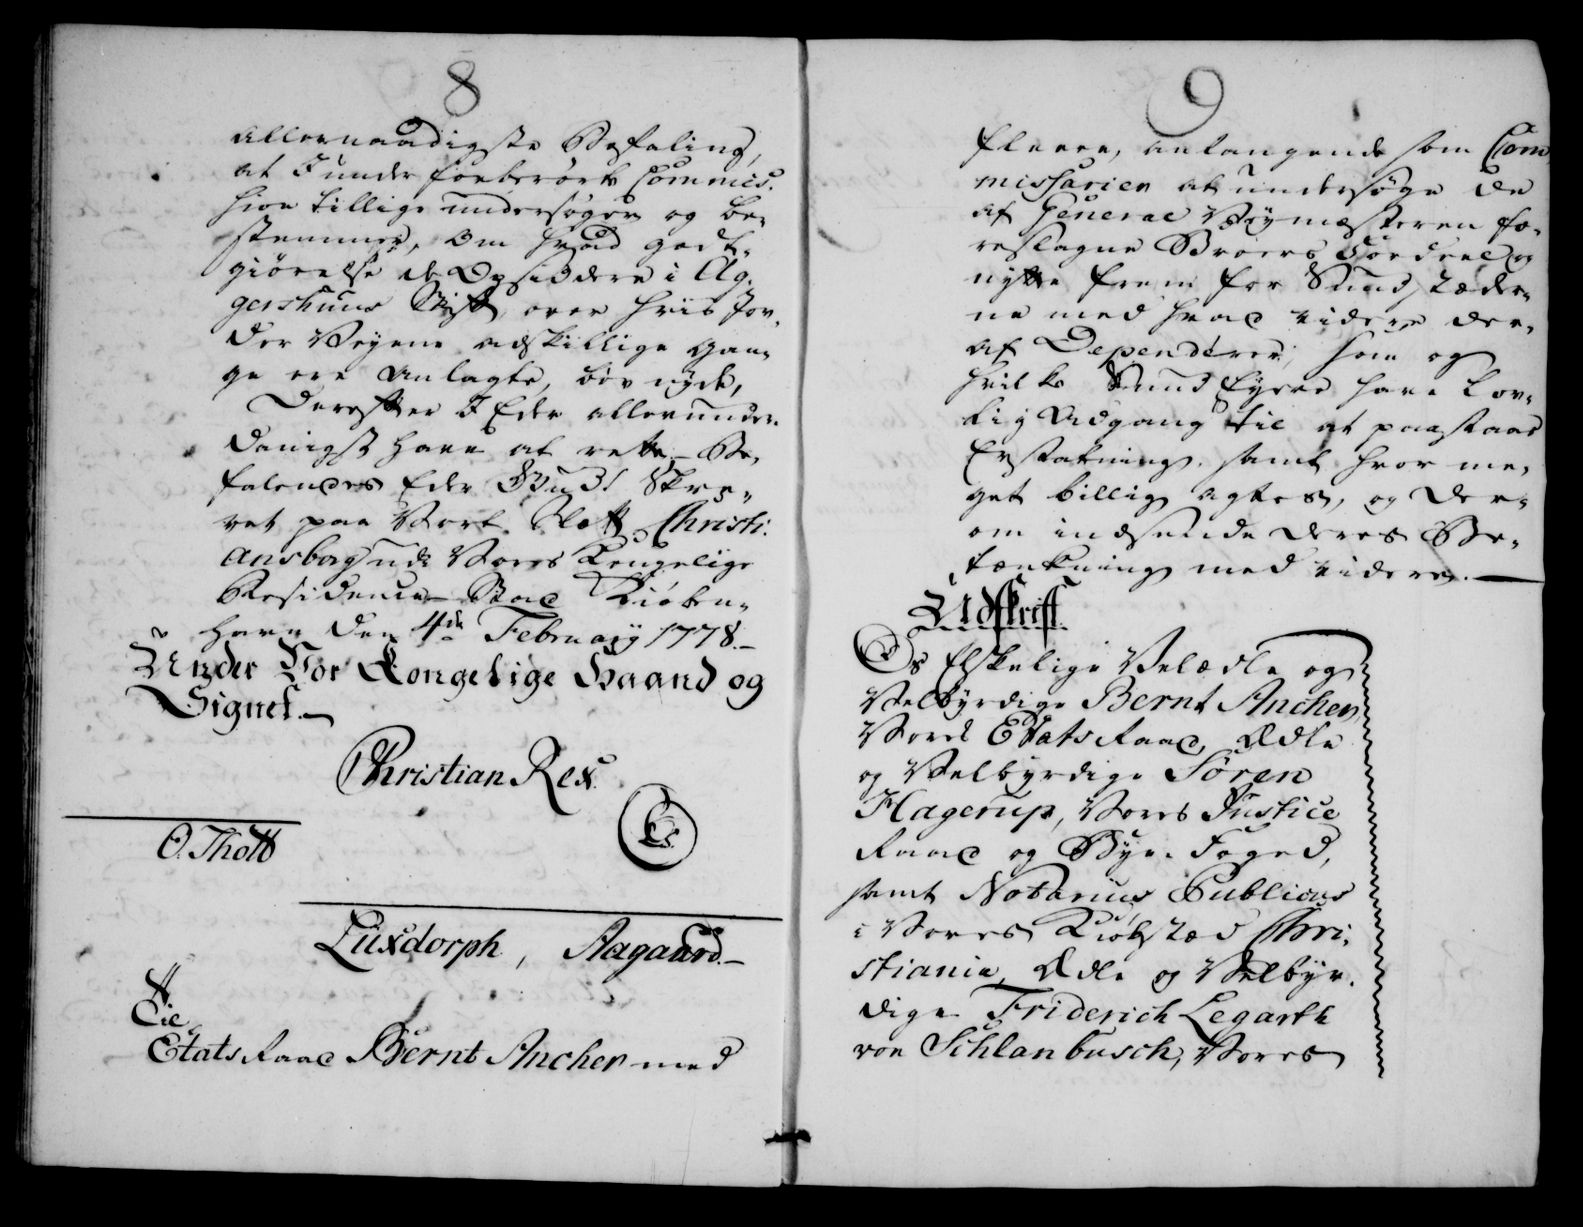 8
allernaadigste Befaling,
at I under forberørte Commis-
sion tillige undersøger og be-
stemmer, om hvad godt-
giørelse de Opsiddere i Ag-
gershuus Stift, over hvis Jor-
der Veyene adskillige Gan-
ge ere anlagte, bør nyde,
Derefter I Eder allerunder-
danigst have at rette. Be-
falendes Eder Gud! Skre-
vet paa Vort Slott Christi-
ansborg udi Vores Kongelige
Residence Stad Kiøben-
havn den 4de February 1778.
Under Vor Kongelige Haand og
Signet.
Christian Rex.
L.S.
O. Thott
Luxdorph, Aagaard.
Til
Etats Raad Bernt Ancher med
9
fleere, anlangende som Com-
missarier at undersøge de
af General Veymesteren fo-
reslagne Broers Fordeel og
nytte frem for Sundstæder-
ne med hvad videre der-
af Dependerer, som og
hvilke Sund Eyere have Lov-
lig Adgang til at paastaae
Erstatning, samt hvor me-
get billig agtes, og der-
om indsende deres Be-
tænkning med videre.
Udskrift.
Os Elskelige Velædle og
Velbyrdige Bernt Ancher,
Vores Etats Raad, Ædle
og Velbyrdige Sören
Hagerup, Vores Justice
Raad og Bye-Foged,
samt Notarius Publicus
i Vores Kiøbstæd Chri-
stiania, Ædle og Velbyr-
dige Friderich Legarth
von Schlanbusch, Vores